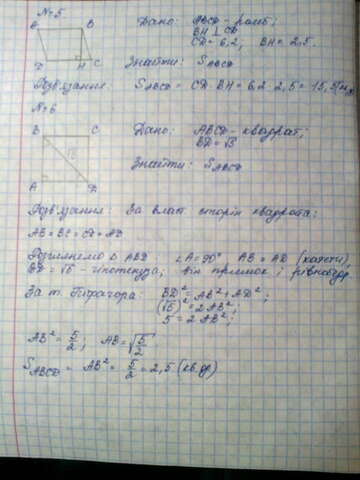 № 5
A B
D H C
Дано: ABCD - ромб;
BH ⊥ CD
CD = 6,2, BH = 2,5.
Знайти: S ABCD
Розв'язання: S ABCD = CD · BH = 6,2 · 2,5 = 15,5
№ 6
B C
√5
A D
Дано: ABCD - квадрат;
BD = √5
Знайти: S ABCD
Розв'язання: За власт сторін квадрата:
AB = BC = CD = AD
Розглянемо Δ ABD: ∠A = 90° AB = AD (катети),
BD = √5 - гіпотенуза, він прямок і рівнобедр
За т. Піфагора: BD² = AB² + AD²;
(√5)² = 2AB²;
5 = 2AB²;
AB² = 5/2; AB = √5/2
S ABCD = AB² = 5/2 = 2,5 (кв.од)